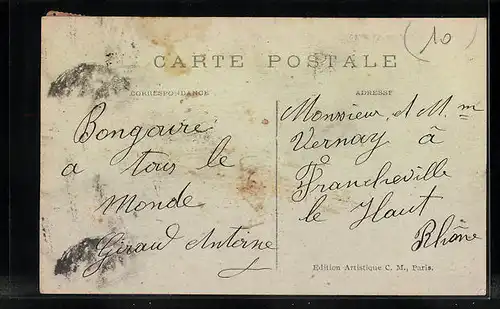 (10)
CARTE POSTALE
CORRESPONDANCE
ADRESSE
Bongaire
a tous le
monde
Giraud Anterne
Monsieur et Mm
Vernay à
Francheville
le Haut
Rhône
Edition Artistique C. M., Paris.